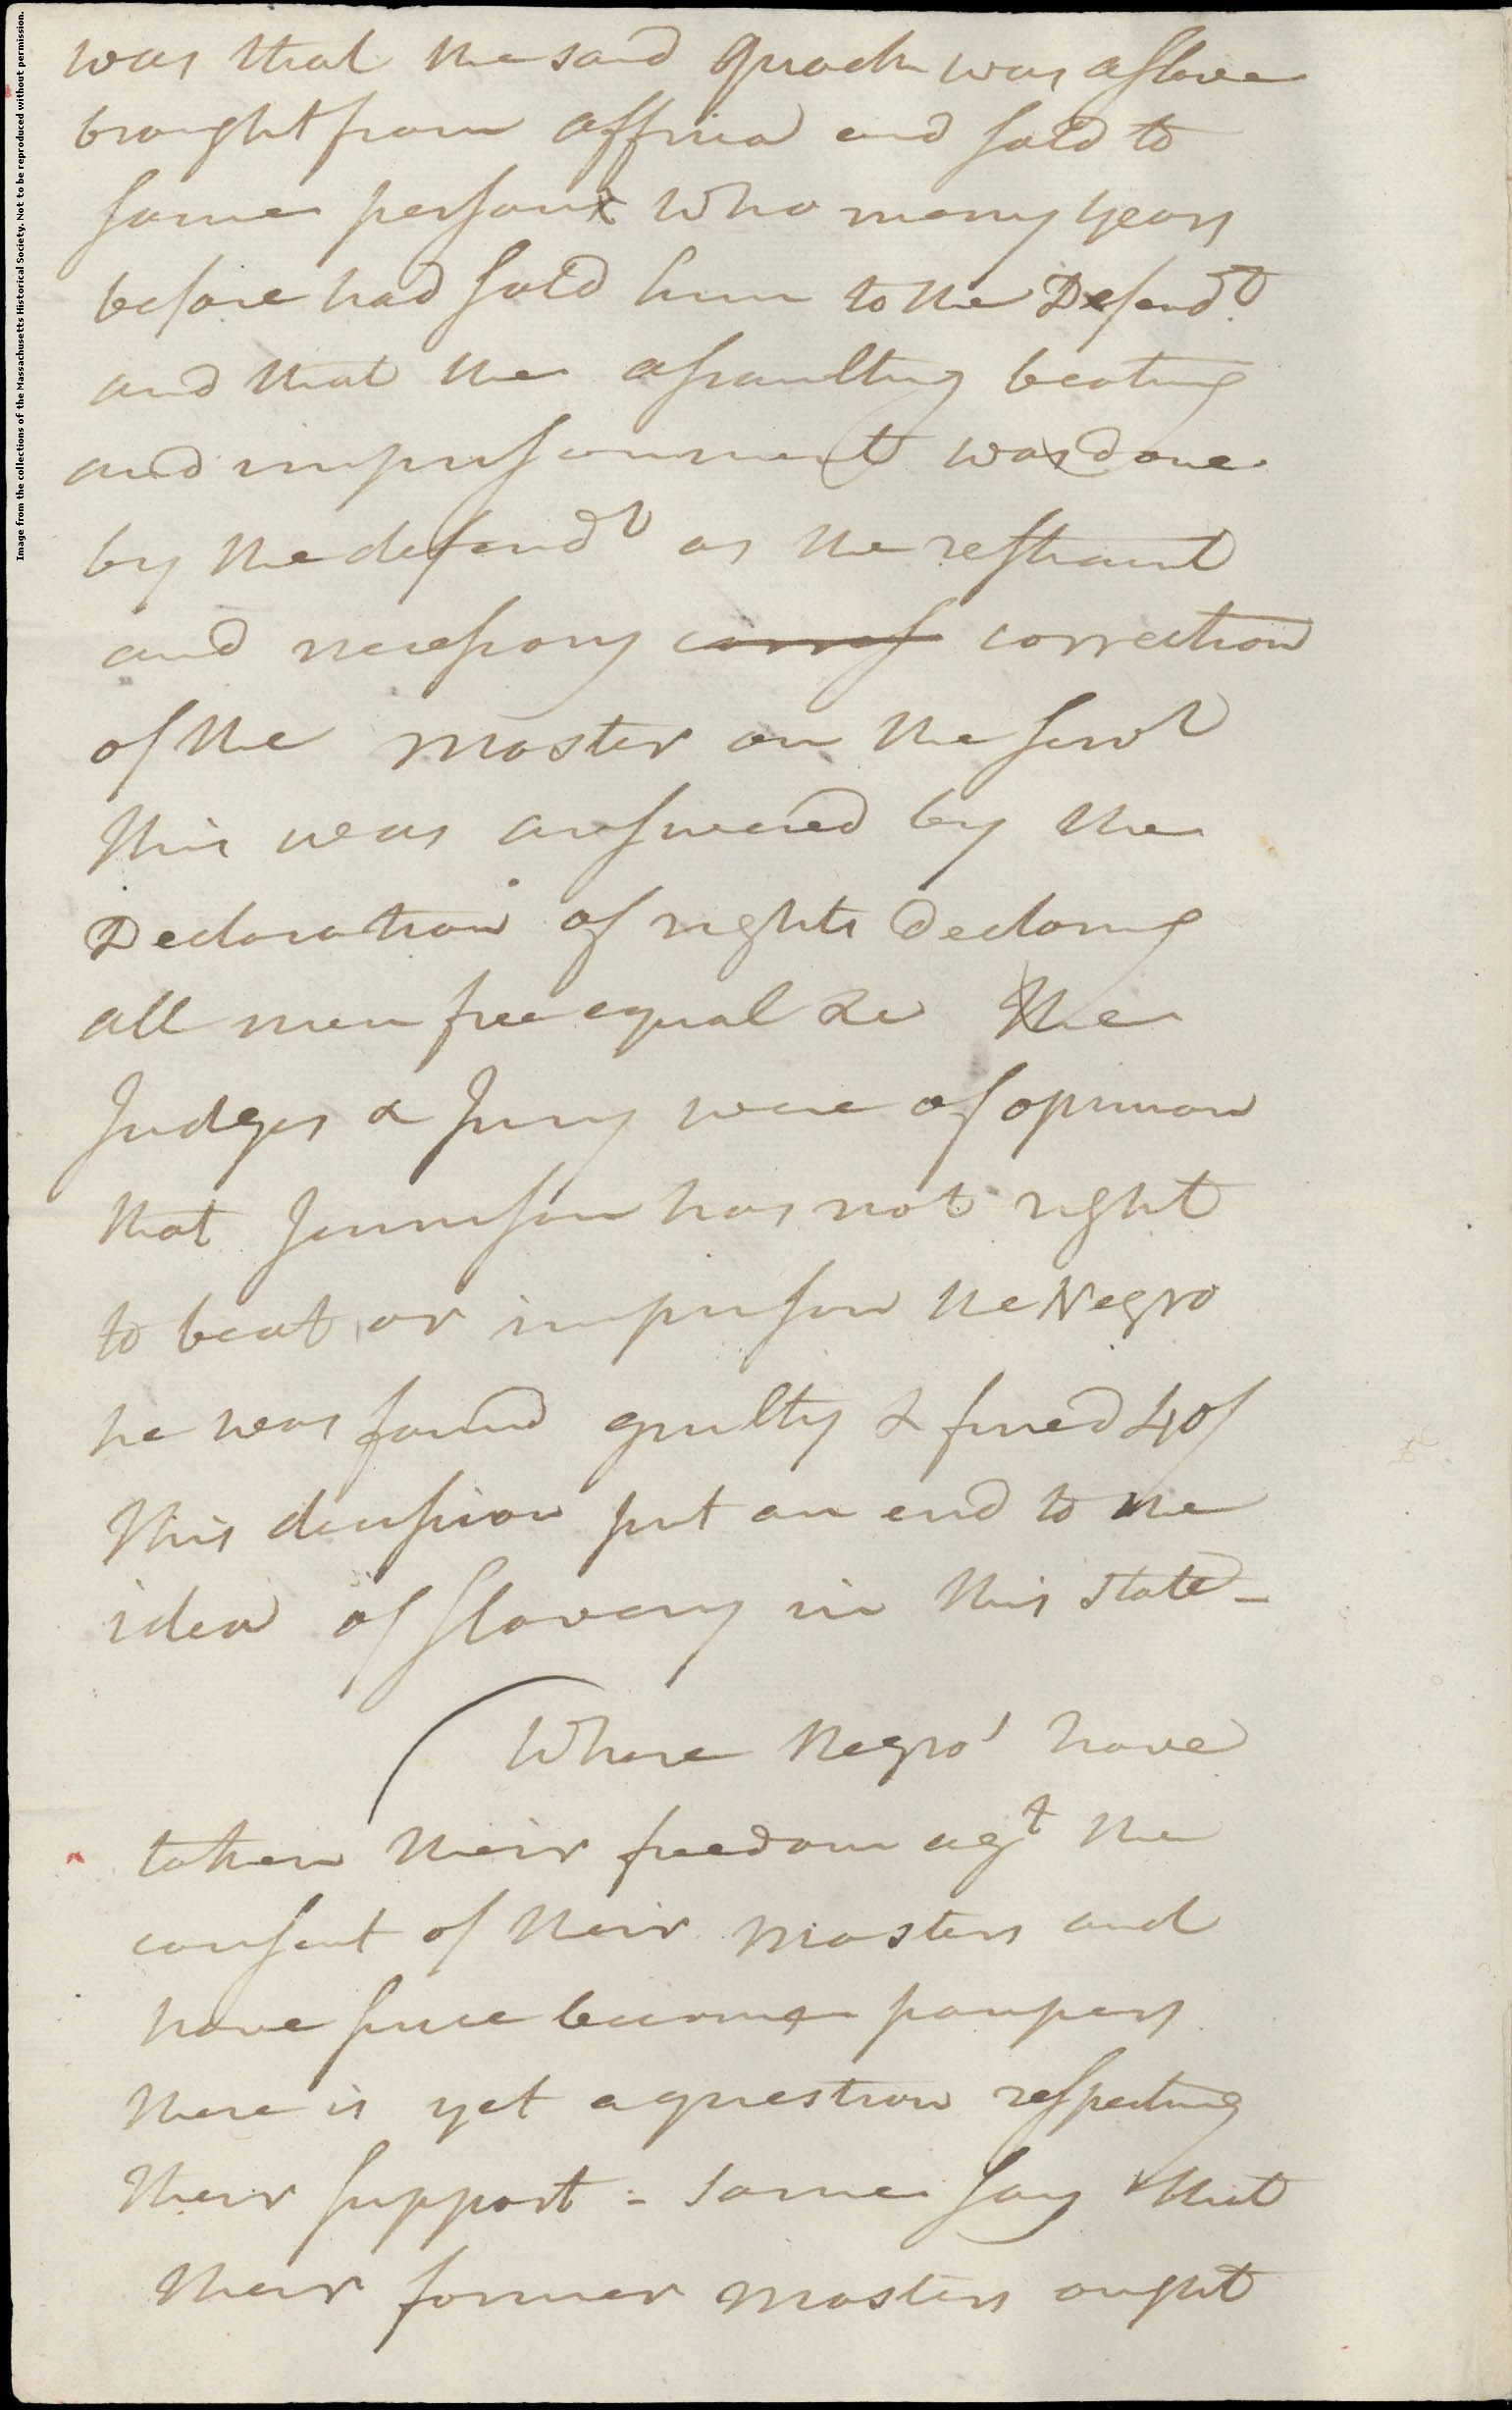 Image from the collections of the Massachusetts Historical Society. Not to be reproduced without permission.
was that the said Quack was a slave
brought from Affrica and sold to
some person who many years
before had sold him to the Defendt
and that the assaulting beating
and imprisonment was done
by the defendt as the restraint
and necessary correction
of the Master on the servt
this was answered by the
Declaration of rights declaring
all men free equal &c The
Judges & Jury were of opinion
that Jennison has not right
to beat or imprison the Negro
he was found guilty & fined 40/
This decission put an end to the
idea of slavery in this State -
Where Negro's have
taken their freedom agt the
consent of their Masters and
have since become paupers
there is yet a question respecting
their support - Some say that
their former masters ought